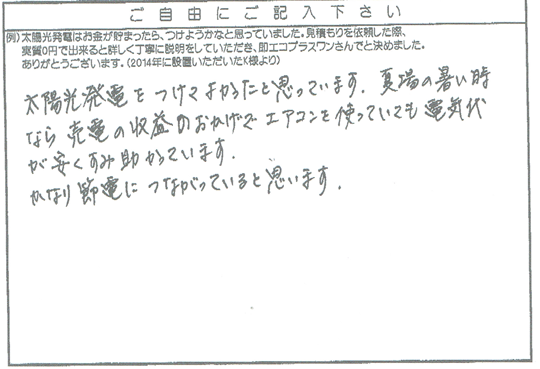 ご自由にご記入下さい
例)太陽光発電はお金が貯まったら、つけようかなと思っていました。見積もりを依頼した際、
実質0円で出来ると詳しく丁寧に説明をしていただき、即エコプラスワンさんでと決めました。
ありがとうございます。(2014年に設置いただいたK様より)
太陽光発電をつけてよかったと思っています。夏場の暑い時
なら売電の収益のおかげでエアコンを使っていても電気代
が安くすみ助かっています。
かなり節電につながっていると思います。